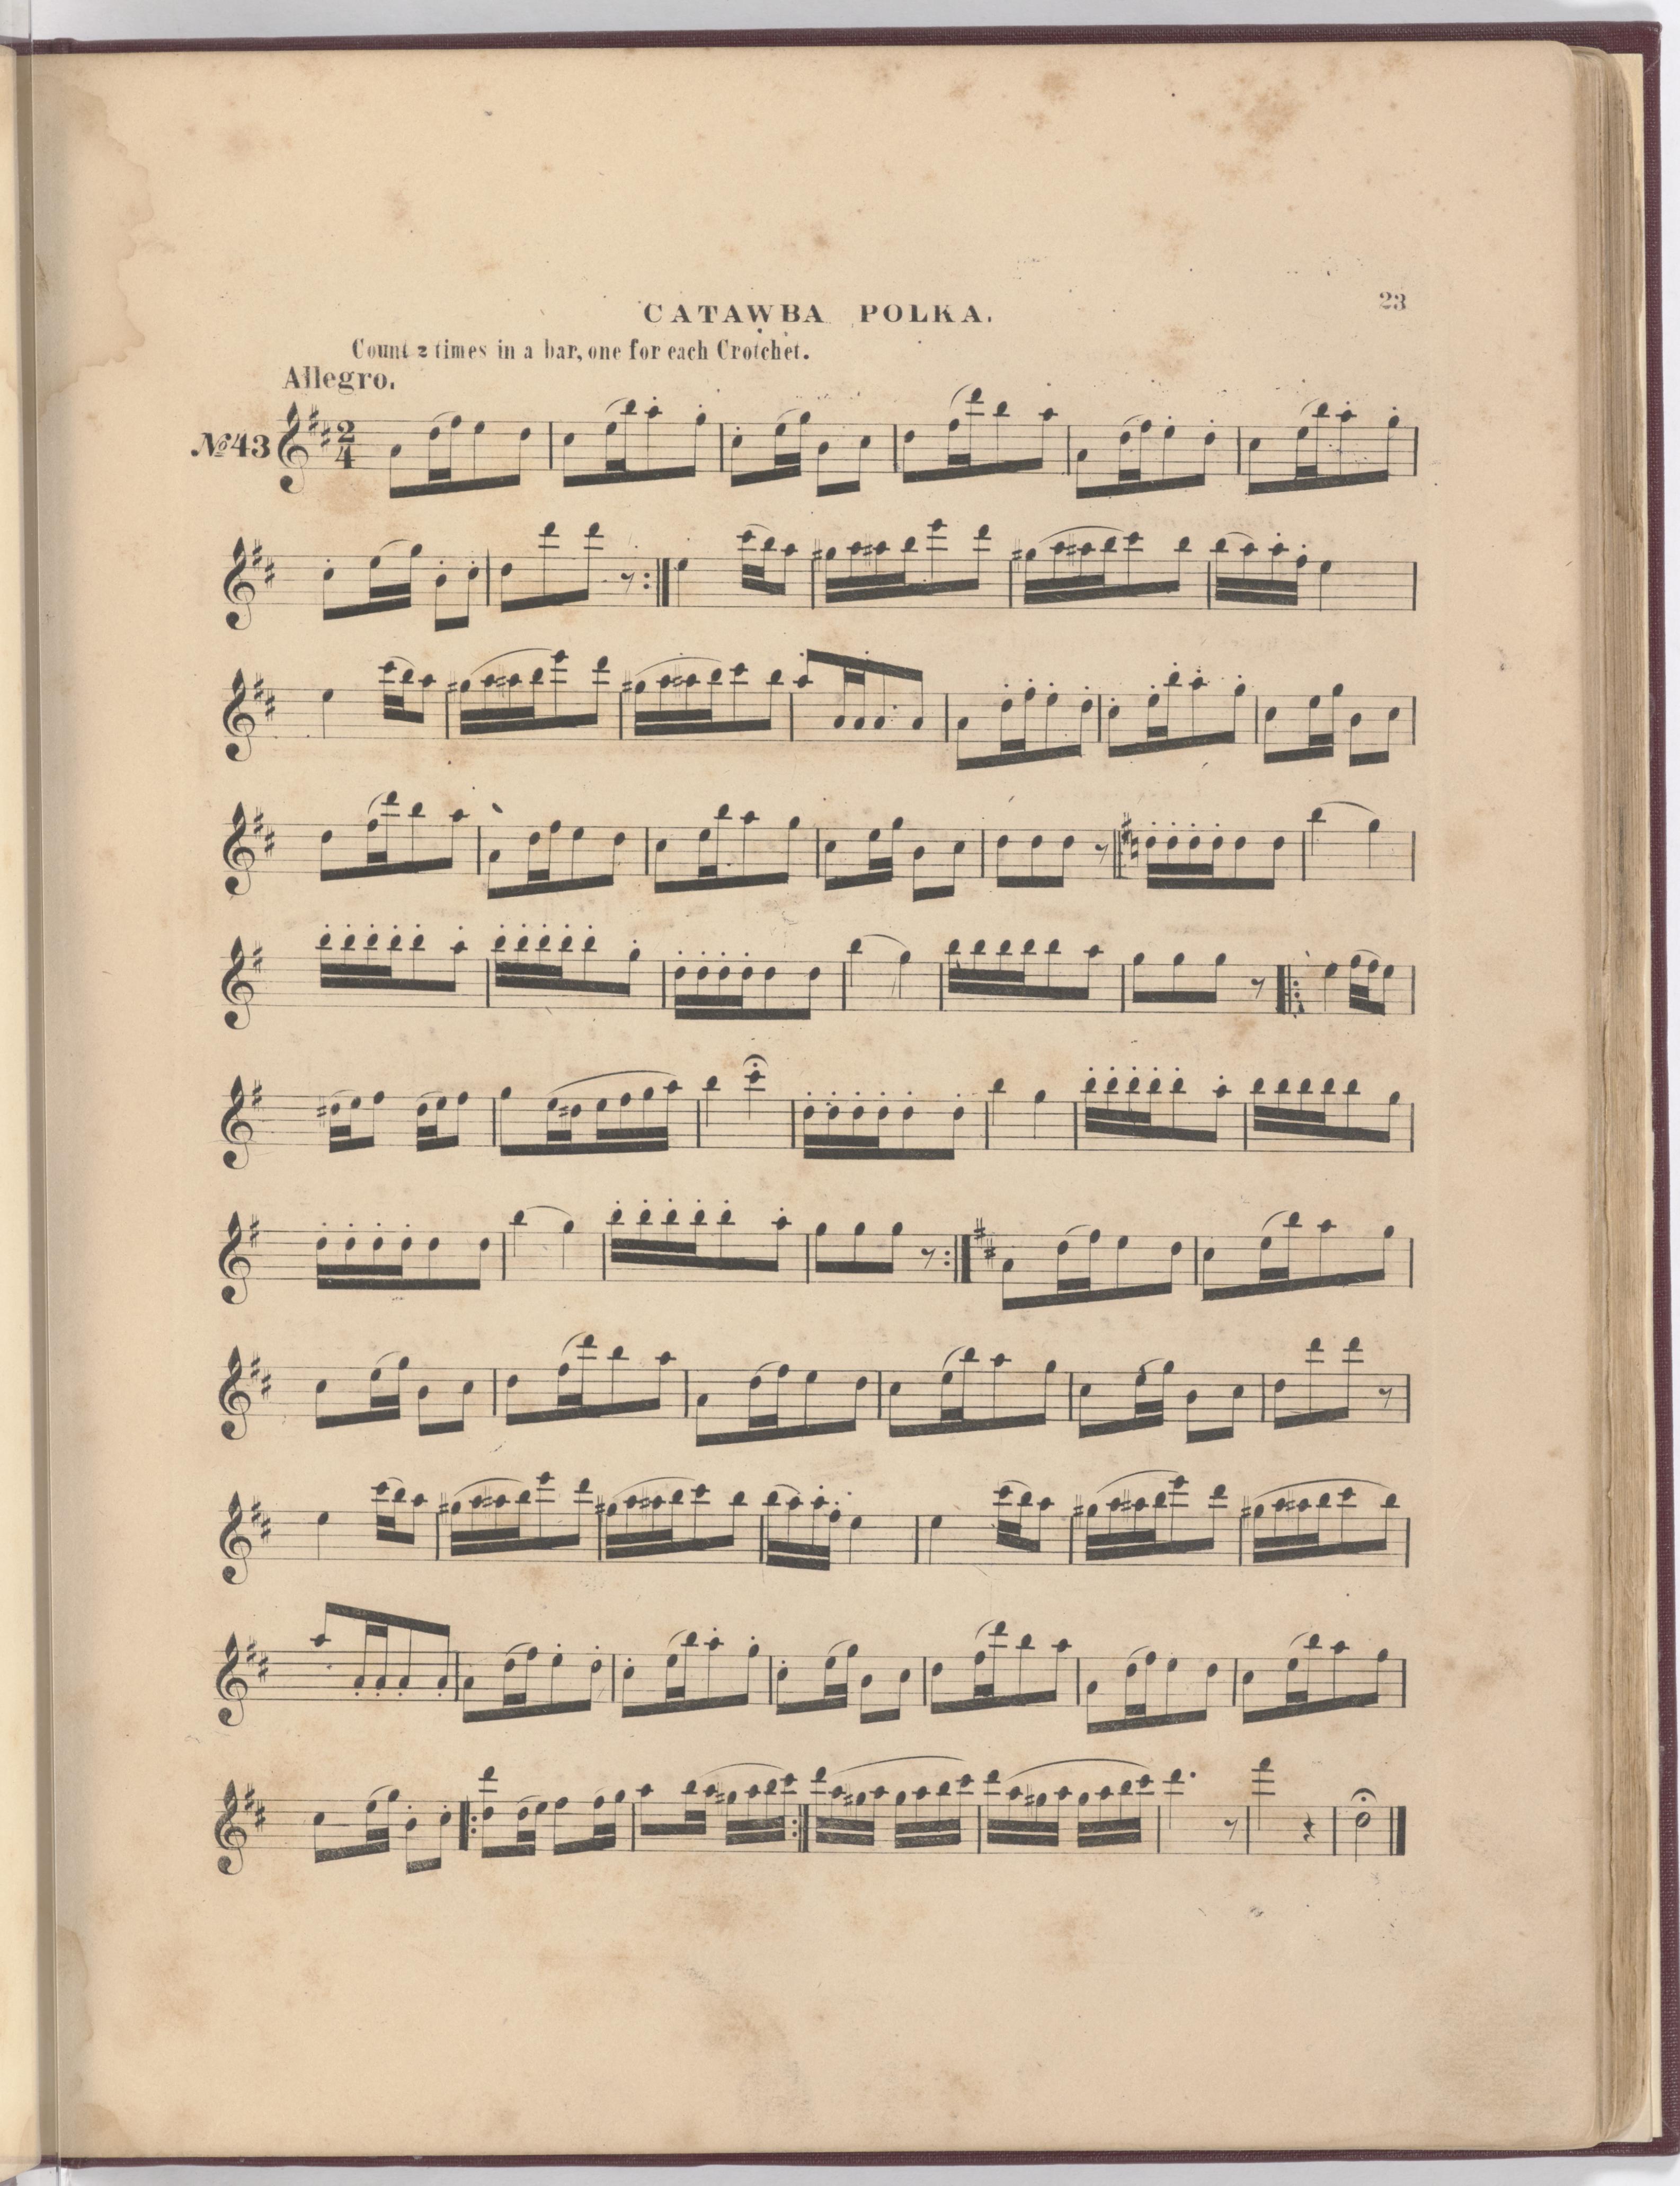 23
CATAWBA POLKA.
Count 2 times in a bar, one for each Crotchet.
Allegro.
№43
2
4